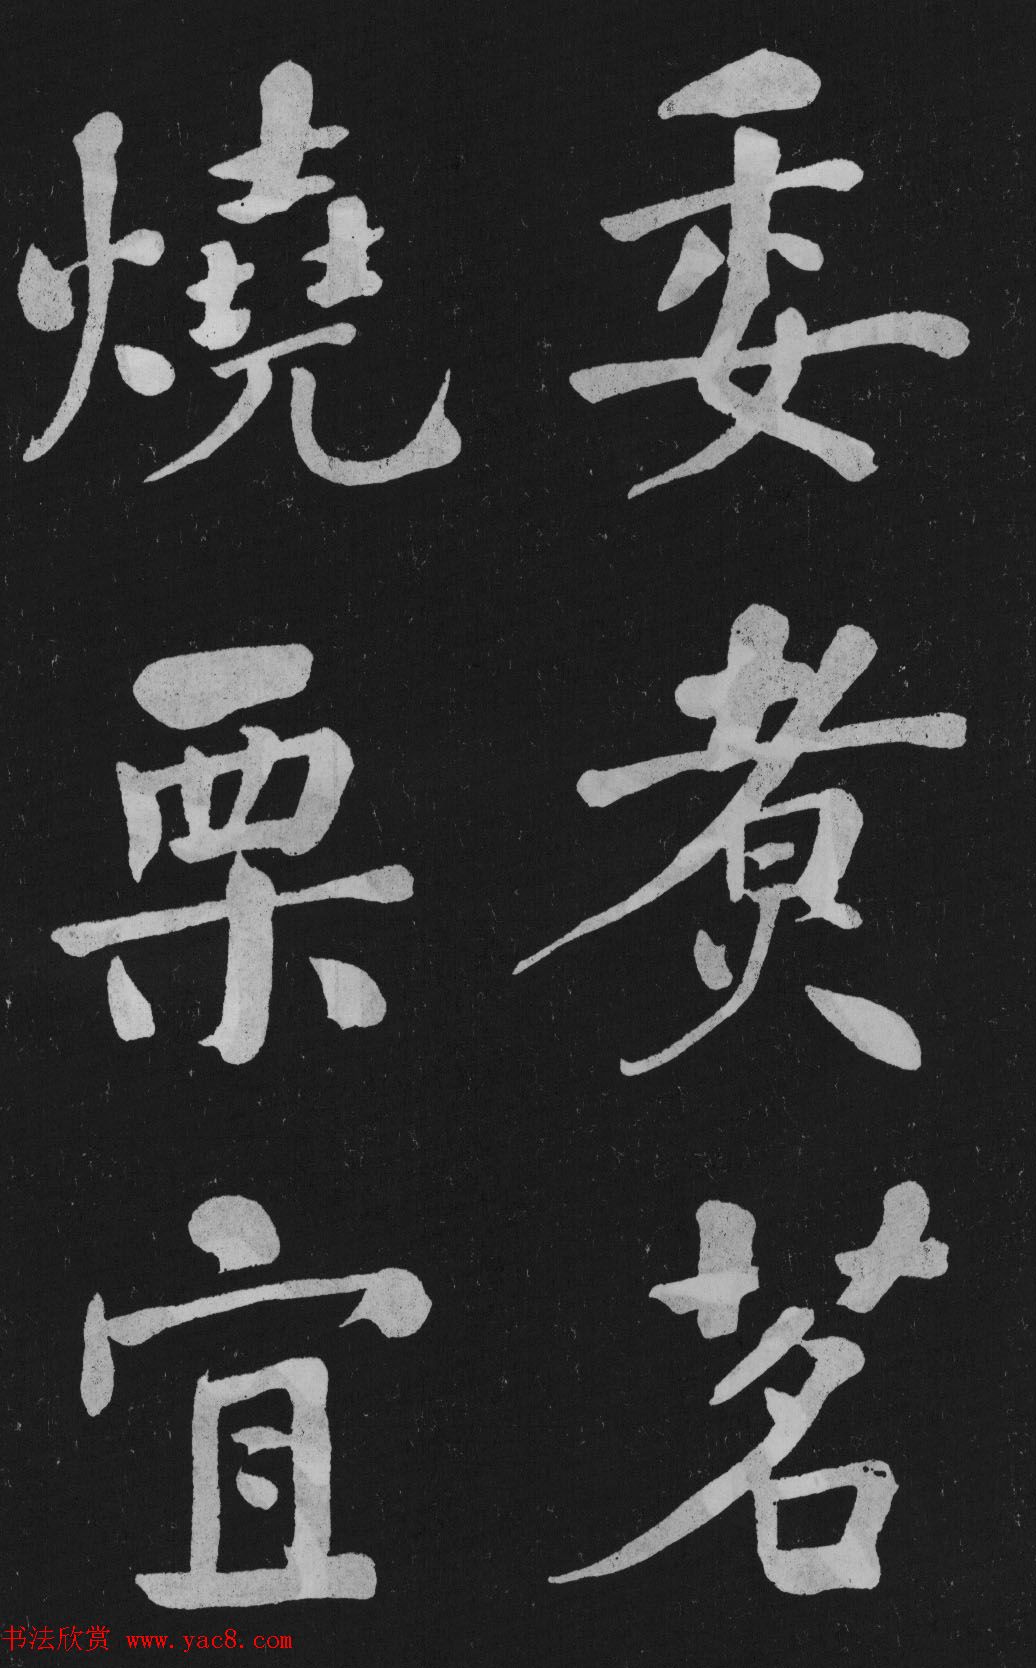 委煮茗
燒栗宜
书法欣赏 www.yac8.com